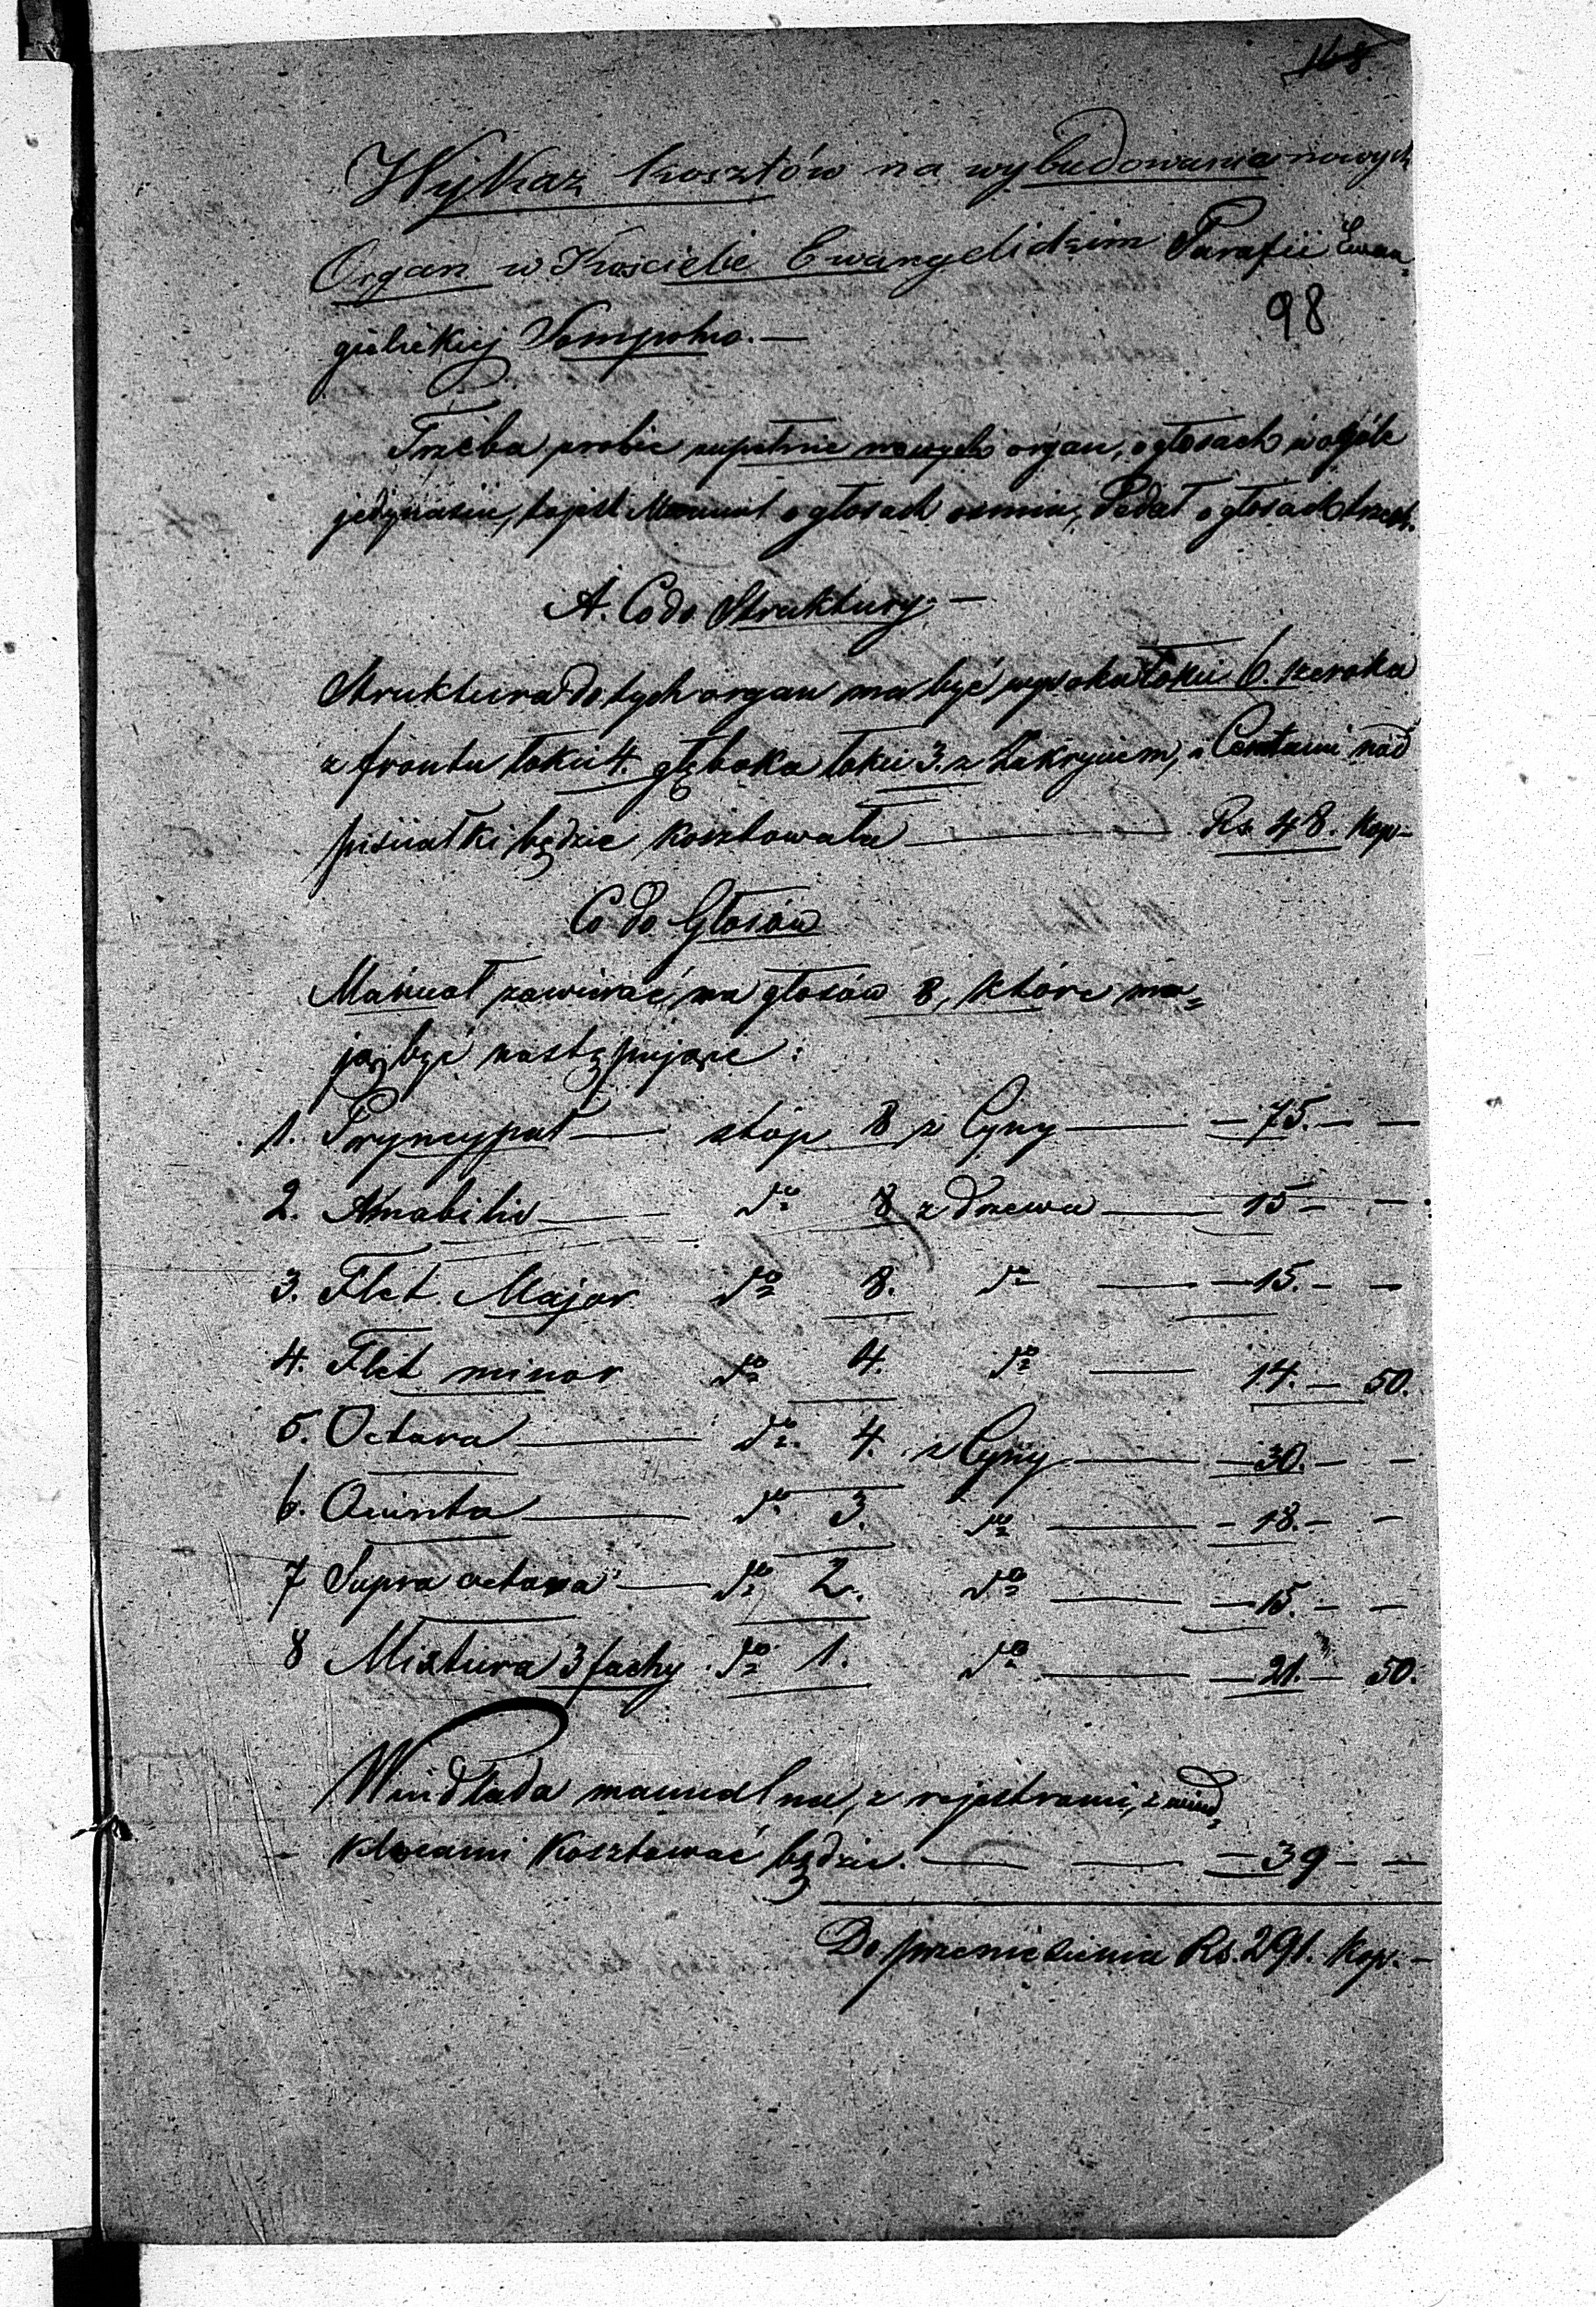 168
Wykaz kosztów na wybudowanie nowych
Organ w Kościele Ewangelickim Parafii Ewan=
gielickiej Sompolno. —
98
Trzeba zrobić zupełnie nowych organ, o głosach w ogóle
jedynaście, to jest Manuał o głosach ośmiu, Pedał o głosach trzech.
A. Co do Struktury. —
Struktura do tych organ ma być wysoka łokci 6. szeroka
z frontu łokci 4. głęboka łokci 3. z zakryciem, i nad
będzie kosztowała — Rs. 48. kop —
Co do Głosów
Manuał zawierać ma głosów 8, które ma=
ją być następujące:
1. Pryncypał — stóp 8 z Cyny — — 75. — —
2. Amabilis — do 8 z drzewa — 15 — —
3. Flet Major do 8. do — — 15. — —
4. Flet minor do 4. do — 14. — 50.
5. Octava — do 4. z Cyny — — 30. — —
6. Quinta — do 3. do — — 18. — —
7 Supra octava — do 2. do — — 15. — —
8 Mixtura 3 fachy do 1. do — — 21. — 50.
Windłada manualna, z rejestrami, z wind=
kłocami kosztować będzie. — — — 39 — —
Do przeniesienia Rs. 291. kop. —